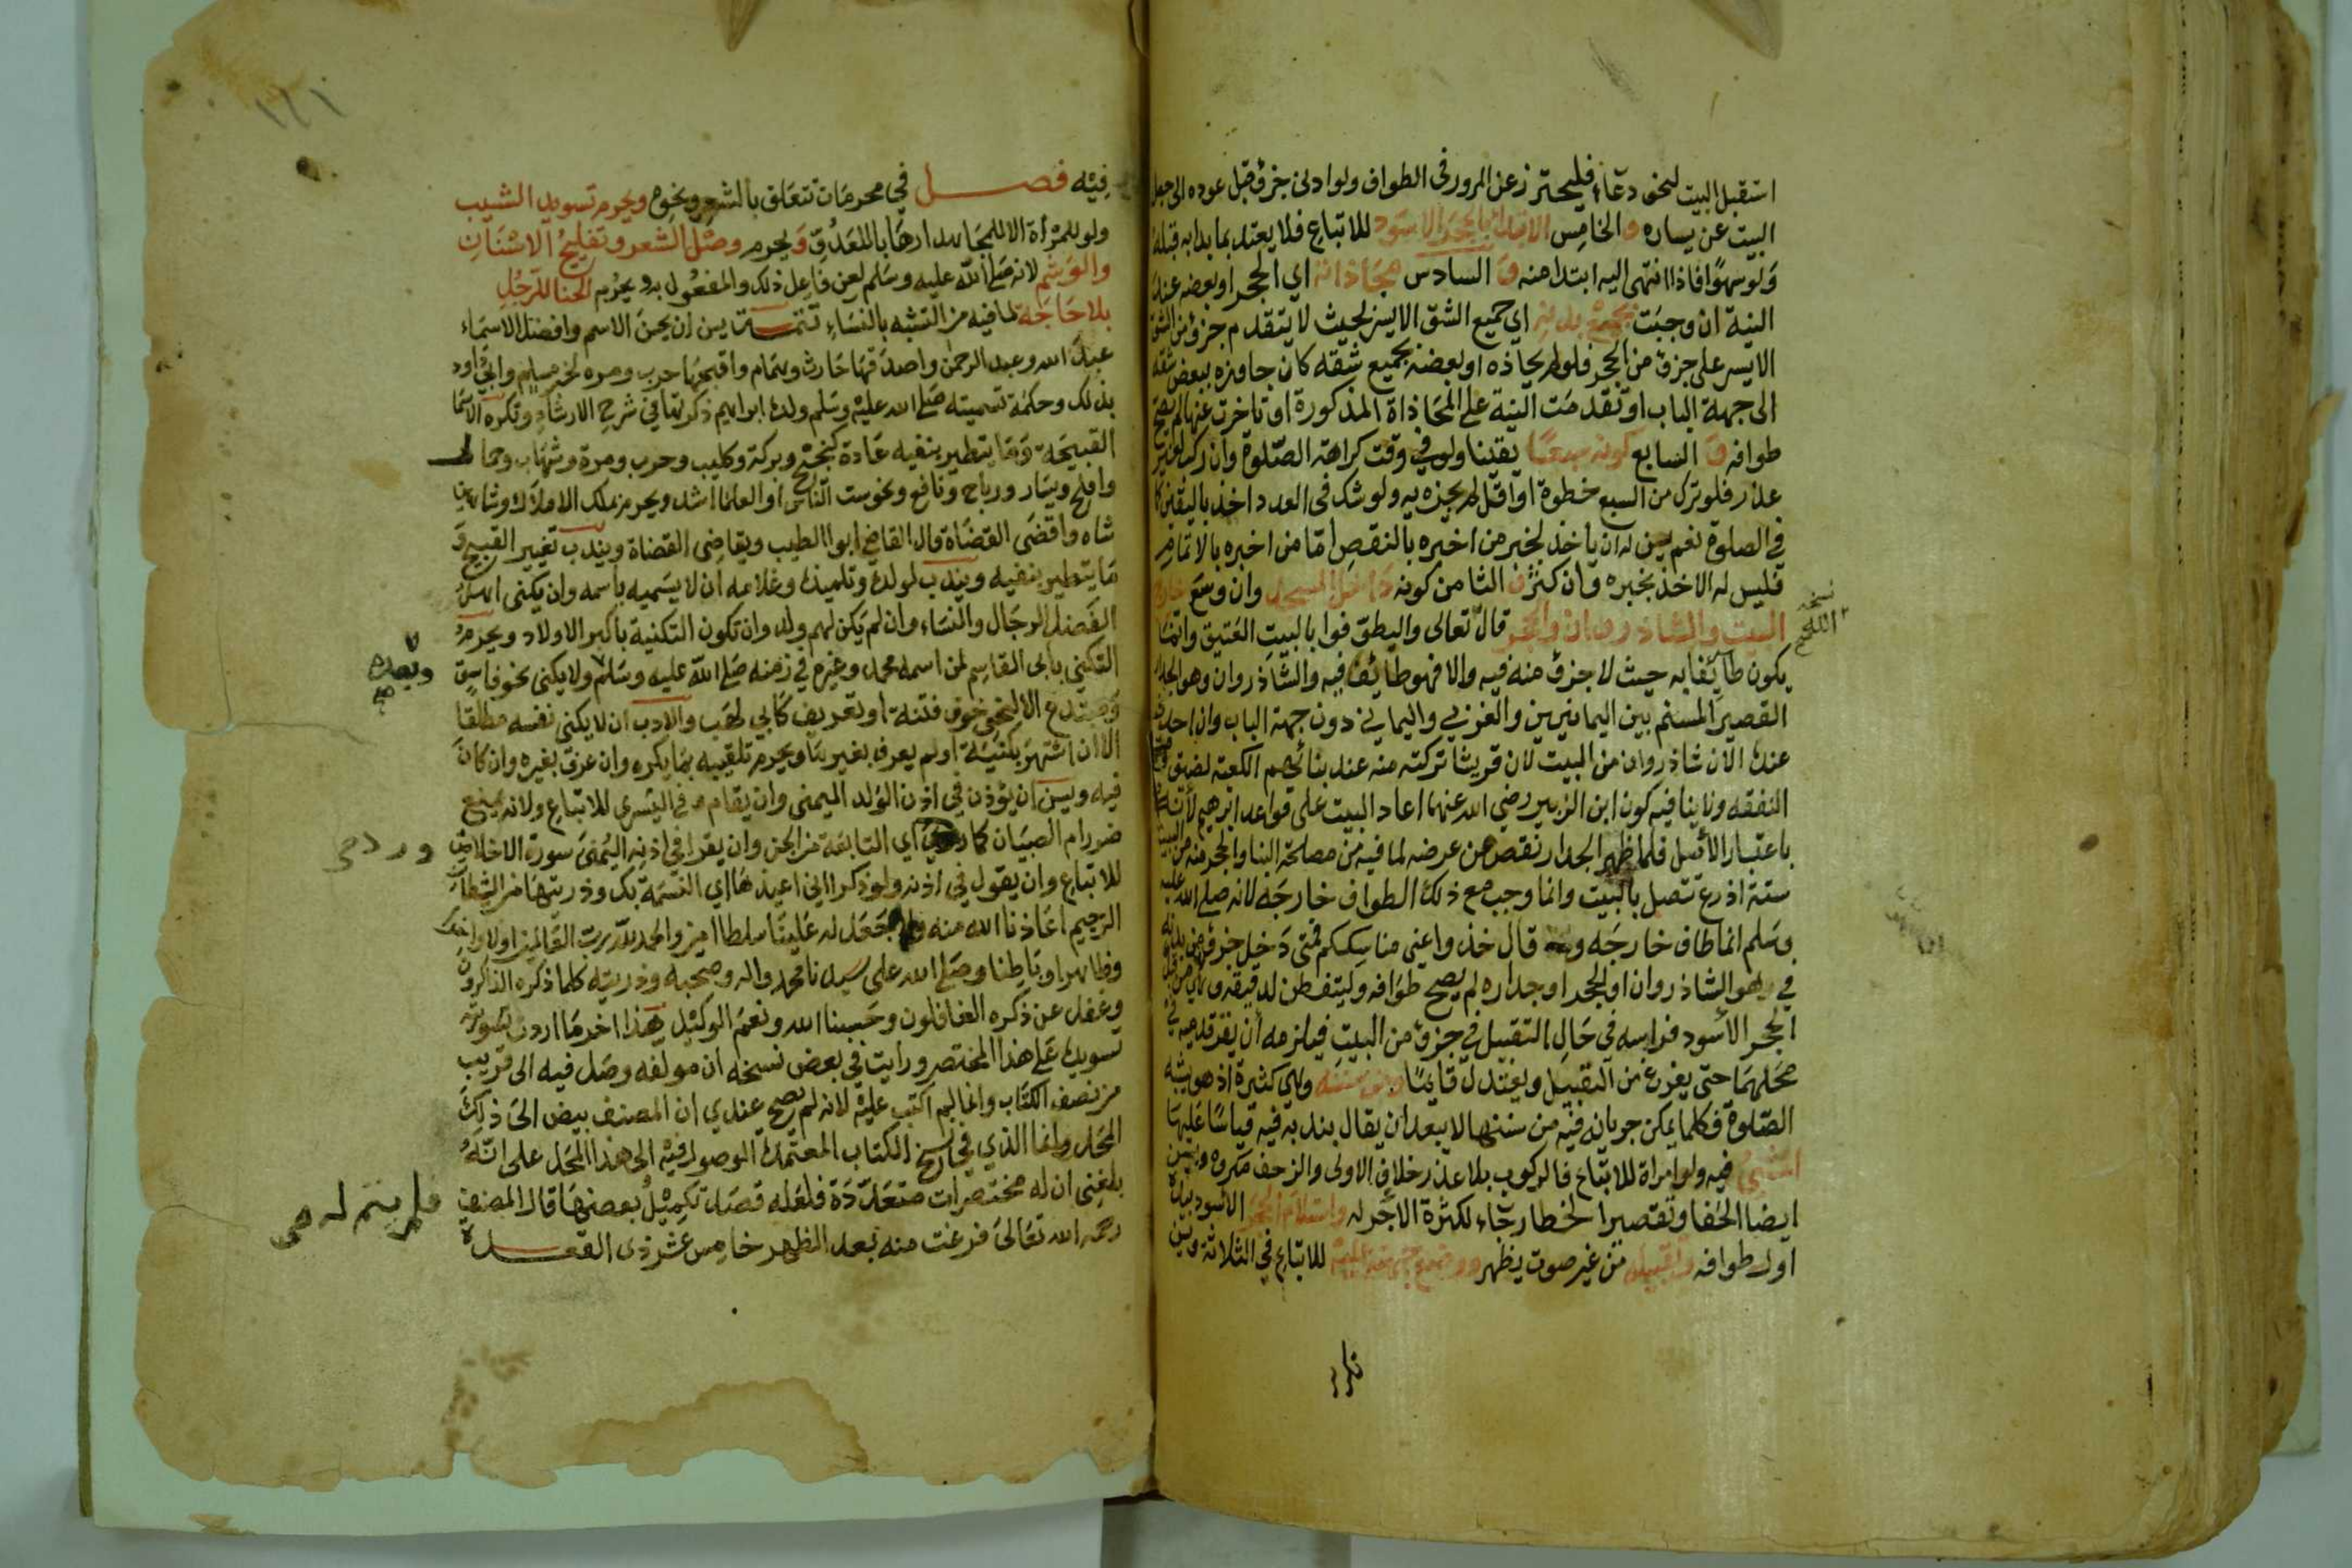 استقبل البيت لنحو دعاء فليحترز عن المرور في الطواف ولو ادنى جزؤ قبل عوده الى جعل
البيت عن يساره و الخامس الابتداء بالحجر الاسود للاتباع فلا يعتد بما بدا به قبله
ولو سهوا فاذا انتهى اليه ابتدا منه و السادس محاذاته اي الحجر او بعضه عند
النية ان وجبت بجميع بدنه اي جميع الشق الايسر بحيث لا يتقدم جزؤ من الشق
الايسر على جزؤ من الحجر فلو لم يحاذه او بعضه بجميع شقه كان جاوزه ببعض شقه
الى جهة الباب او تقدمت النية على المحاذاة المذكورة او تاخرت عنها لم يصح
طوافه و السابع كونه سبعا يقينا ولو في وقت كراهة الصلوة وان ركب لغير
عذر فلو ترك من السبع خطوة او اقل لم يجزه ولو شك في العدد اخذ باليقين كما
في الصلوة نعم يسن له ان ياخذ بخبر من اخبره بالنقص اما من اخبره بالاتمام
فليس له الاخذ بخبره وان كثر و الثامن كونه داخل المسجد وان وسع خارج
البيت والشاذروان والحجر قال تعالى وليطوفوا بالبيت العتيق وانما
يكون طايفا به حيث لا جزؤ منه فيه والا فهو طائف فيه والشاذروان وهو الجدار
القصير المسنم بين اليمانيين والغربي واليماني دون جهة الباب وان احدث
عنده الان شاذروان من البيت لان قريشا تركته منه عند بنائهم الكعبة لضيق
النفقة ولا ينافيه كون ابن الزبير رضي الله عنهما اعاد البيت على قواعد ابرهيم لانه
باعتبار الاصل فلما ظهر الجدار نقص من عرضه لما فيه من مصلحة البنا والحجر منه من البيت
ستة اذرع تتصل بالبيت وانما وجب مع ذلك الطواف خارجه لانه صلى الله عليه
وسلم انما طاف خارجه وقال خذوا عني مناسككم فمتى دخل جزؤ من بدنه
في هوا الشاذروان او الحجر او جداره لم يصح طوافه وليتفطن لدقيقة وهي من قبل
الحجر الاسود فراسه في حال التقبيل في جزؤ من البيت فيلزمه ان يقر قدميه في
محلهما حتى يفرغ من التقبيل ويعتدل قايما ومن سننه وهي كثيرة اذ هو يشبه
الصلوة فكلما يمكن جريانه فيه من سننها لا يبعد ان يقال بندبه فيه قياسا عليها
المشي فيه ولو امراة للاتباع فالركوب بلا عذر خلاف الاولى والزحف مكروه ويسن
ايضا الحفا وتقصير الخطا رجاء لكثرة الاجر له واستلام الحجر الاسود بيده
اول طوافه وتقبيله من غير صوت يظهر ووضع جبهته عليه للاتباع في الثلاثة ويسن
نسخه
فيه فصل في محرمات تتعلق بالشعر ونحوه ويحرم تسويد الشيب
ولو للمراة الا للمجاهد ارهابا للعدو ويحرم وصل الشعر وتفليج الاسنان
والوشم لانه صلى الله عليه وسلم لعن فاعل ذلك والمفعول به ويحرم الحنا للرجل
بلا حاجة لما فيه من التشبه بالنساء تتمة يسن ان يحسن الاسم وافضل الاسماء
عبد الله وعبد الرحمن واصدقها حارث وهمام واقبحها حرب ومره لخبر مسلم وابي داود
بذلك وحكمة تسميته صلى الله عليه وسلم ولده ابراهيم ذكرتها في شرح الارشاد وتكره الاسما
القبيحة وما يتطير بنفيه عادة كنجيح وبركة وكليب وحرب ومرة وشهاب وحمار
وافلح ويسار ورباح ونافع ونحو ست الناس او العلما اشد ويحرم بملك الاملاك وشاهين
شاه واقضى القضاة قال القاضي ابو الطيب وبقاضي القضاة ويندب تغيير القبيح و
ما يتطير بنفيه ويندب لولده وتلميذه وغلامه ان لا يسميه باسمه وان يكنى اهل
الفضل الرجال والنساء وان لم يكن لهم ولد وان تكون التكنية باكبر الاولاد ويحرم
التكني بابي القاسم لمن اسمه محمد وغيره في زمنه صلى الله عليه وسلم ولا يكنى نحو فاسق
ومبتدع الا لنحو خوف فتنة او تعريف كابي لهب والادب ان لا يكنى نفسه مطلقا
الا ان اشتهر بكنية او لم يعرف بغيرها ويحرم تلقيبه بما يكره وان عرف بغيره وان كان
فيه ويسن ان يؤذن في اذن الولد اليمنى وان يقام في اليسرى للاتباع ولانه يمنع
ضرر ام الصبيان كما ورد اي التابعة من الجن وان يقرا في اذنه اليمنى سورة الاخلاص
للاتباع وان يقول في اذنه ولو ذكرا اني اعيذها اي النسمة بك وذريتها من الشيطان
الرجيم اعاذنا الله منه ولا جعل له علينا سلطانا امين والحمد لله رب العالمين اولا واخرا
وظاهرا وباطنا وصلى الله على سيدنا محمد واله وصحبه وذريته كلما ذكره الذاكرون
وغفل عن ذكره الغافلون وحسبنا الله ونعم الوكيل هذا اخر ما اردت
تسويده على هذا المختصر ورايت في بعض نسخه ان مولفه وصل فيه الى قريب
من نصف الكتاب وانما لم اكتب عليه لانه لم يصح عندي ان المصنف بيض الى ذلك
المحل وانما الذي في نسخ الكتاب المعتمدة الوصول فيه الى هذا المحل على انه
بلغني ان له مختصرات متعددة فلعله قصد تكميل بعضها قال المصنف
رحمه الله تعالى فرغت منه بعد الظهر خامس عشر ذي القعدة
وبعده
صح
ورد صح
فلم يتم له صح